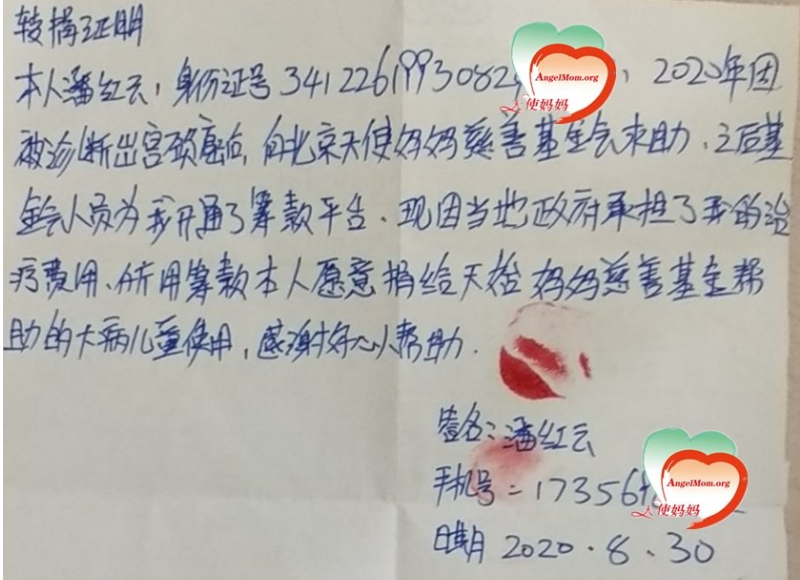 转捐证明
本人潘红云，身份证号 34122619930824 AngelMom.org 天使妈妈 ，2020年因
被诊断出宫颈癌，向北京天使妈妈慈善基金会求助，之后基
金会人员为我开通了筹款平台、现因当地政府承担了我的治
疗费用、所用筹款本人愿意捐给天使妈妈慈善基金帮
助的大病儿童使用，感谢好心人帮助．
签名：潘红云
手机号：173564 AngelMom.org 天使妈妈
日期 2020.8.30